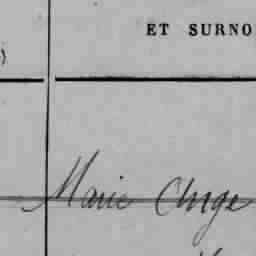 ET SURNO
Marie Ange